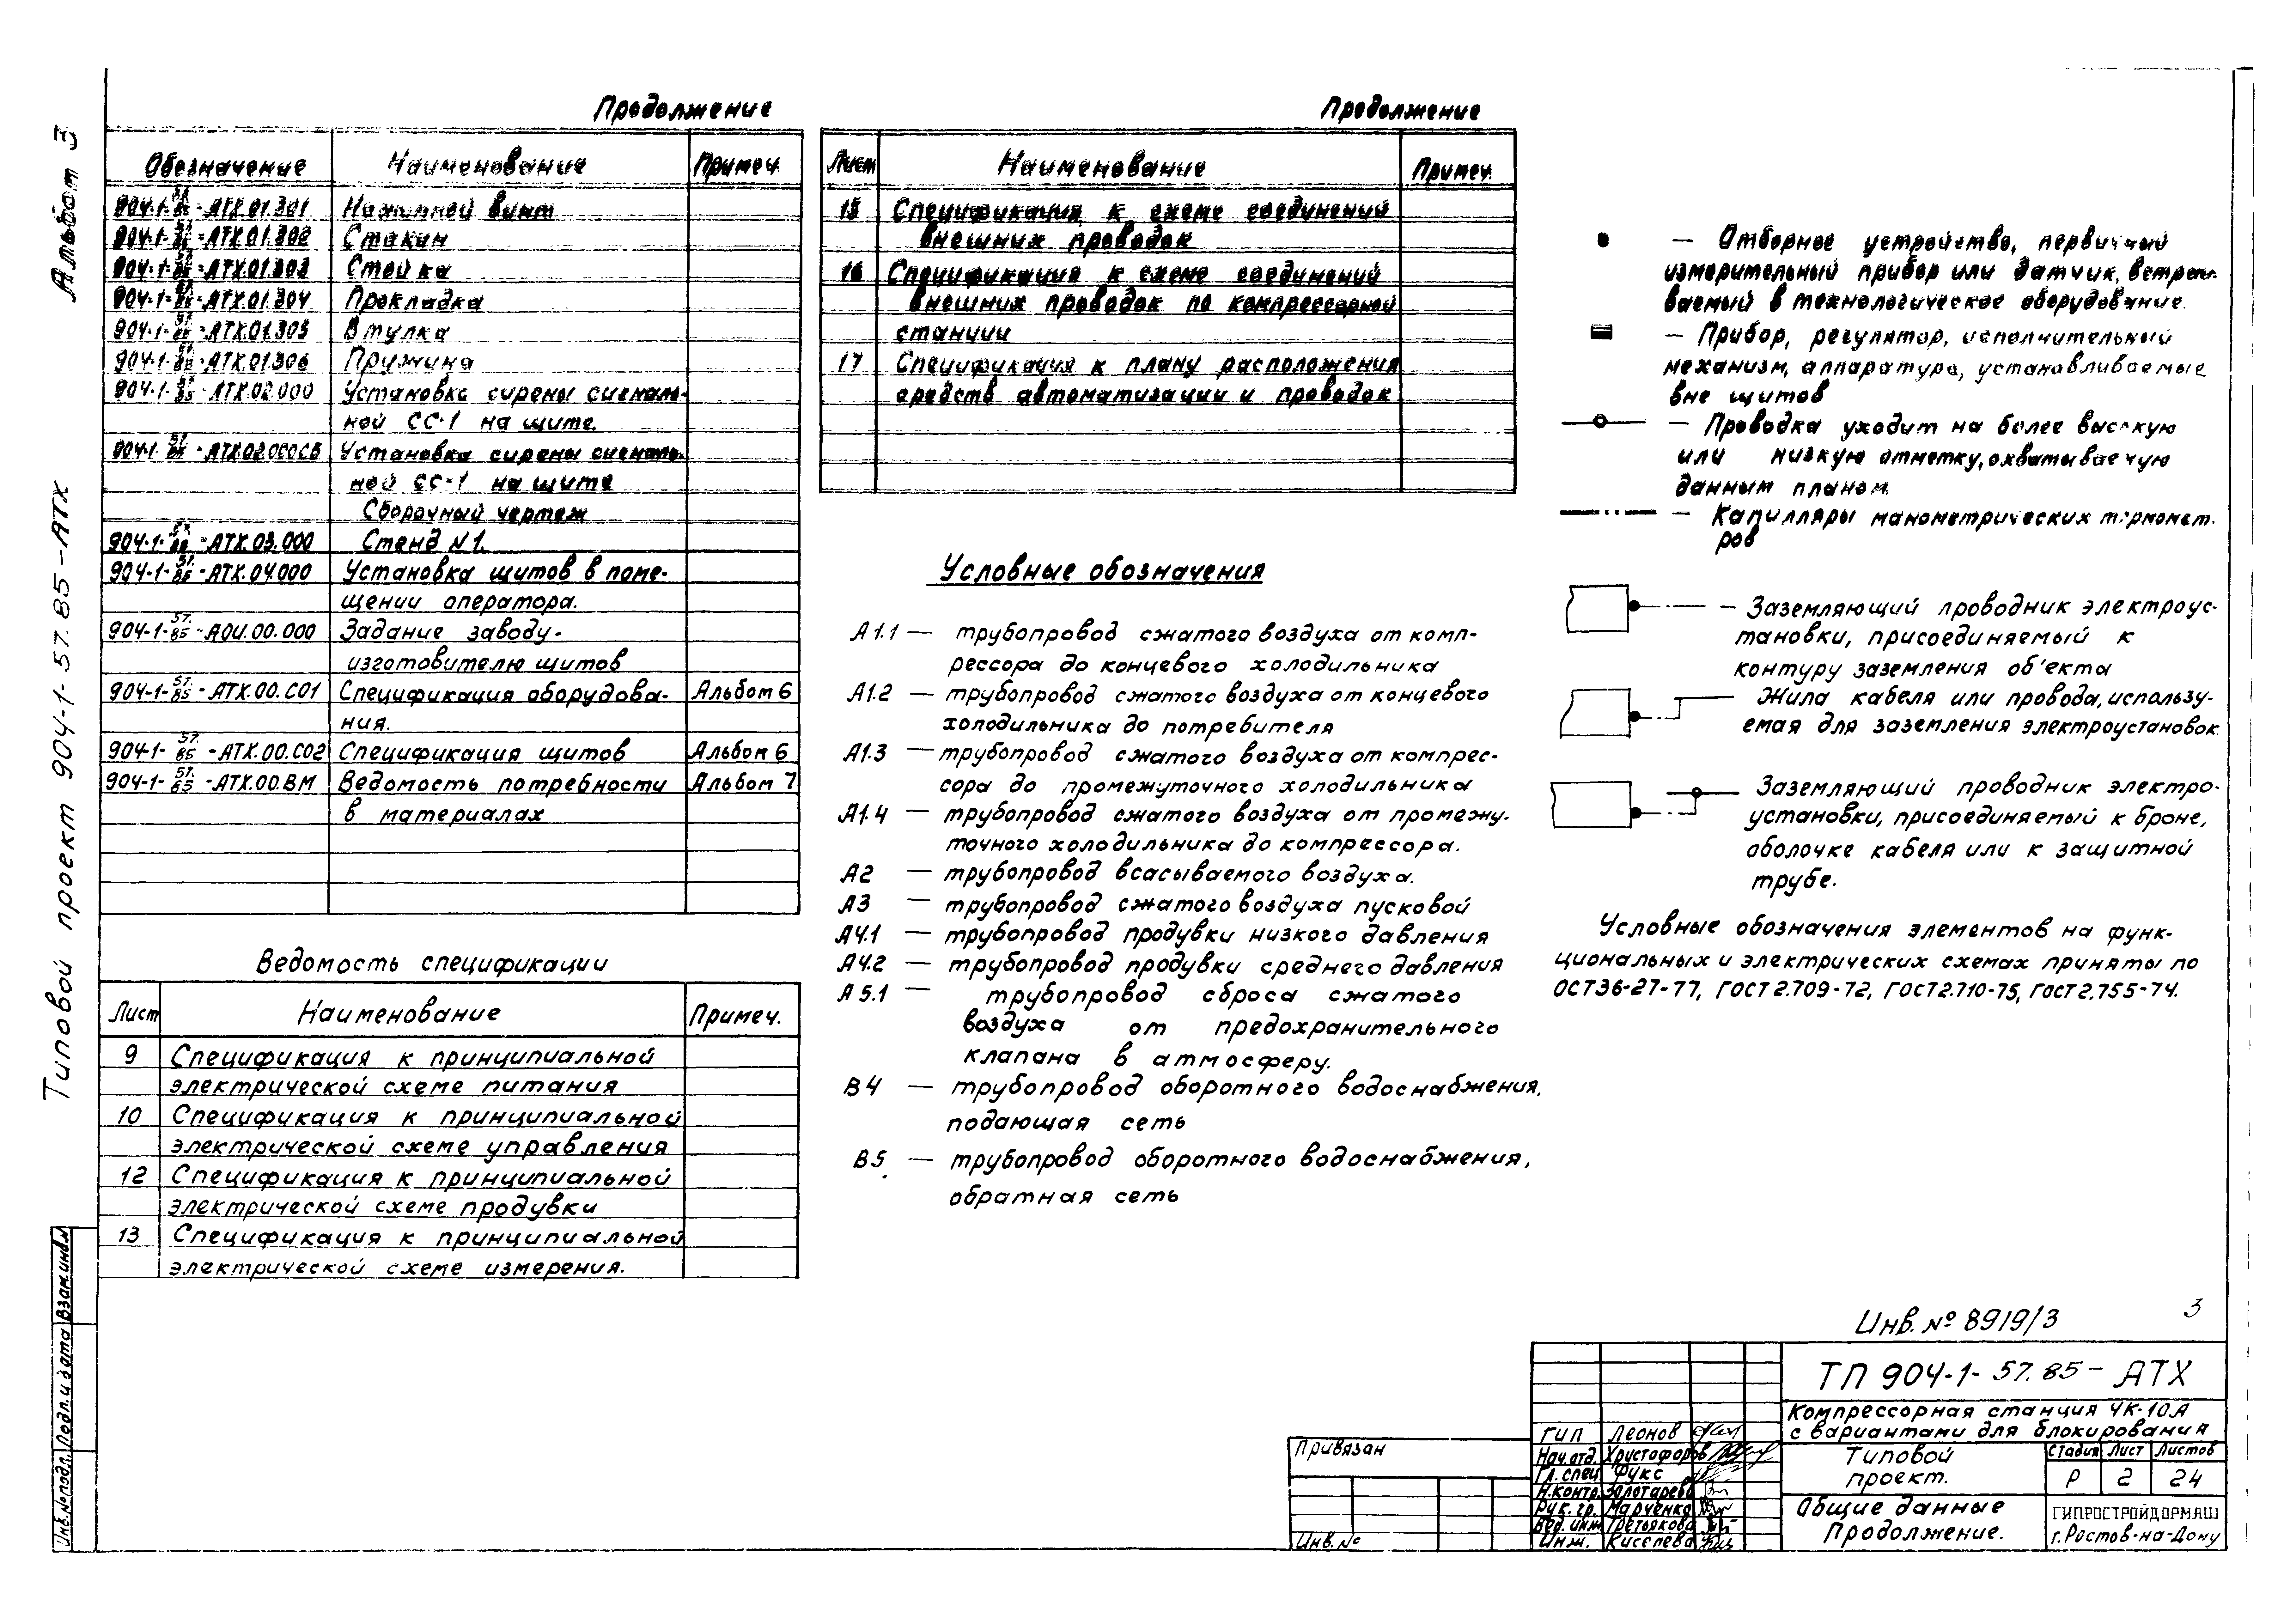 Альбом 3
Типовой проект 904-1-57.85-АТХ
Продолжение
Обозначение Наименование Примеч.
904-1-57.85-АТХ.01.301 Нажимной винт
904-1-57.85-АТХ.01.302 Стакан
904-1-57.85-АТХ.01.303 Стойка
904-1-57.85-АТХ.01.304 Прокладка
904-1-57.85-АТХ.01.305 Втулка
904-1-57.85-АТХ.01.306 Пружина
904-1-57.85-АТХ.02.000 Установка сирены сигналь-
ной СС-1 на щите.
904-1-57.85-АТХ.02.000СБ Установка сирены сигналь-
ной СС-1 на щите
Сборочный чертеж
904-1-57.85-АТХ.03.000 Стенд N1.
904-1-57.85-АТХ.04.000 Установка щитов в поме-
щении оператора.
904-1-57.85-АОИ.00.000 Задание заводу-
изготовителю щитов
904-1-57.85-АТХ.00.С01 Спецификация оборудова- Альбом 6
ния.
904-1-57.85-АТХ.00.С02 Спецификация щитов Альбом 6
904-1-57.85-АТХ.00.ВМ Ведомость потребности Альбом 7
в материалах
Ведомость спецификации
Лист Наименование Примеч.
9 Спецификация к принципиальной
электрической схеме питания
10 Спецификация к принципиальной
электрической схеме управления
12 Спецификация к принципиальной
электрической схеме продувки
13 Спецификация к принципиальной
электрической схеме измерения.
Продолжение
Лист Наименование Примеч.
15 Спецификация к схеме соединений
внешних проводок
16 Спецификация к схеме соединений
внешних проводок по компрессорной
станции
17 Спецификация к плану расположения
средств автоматизации и проводок
Условные обозначения
А1.1 — трубопровод сжатого воздуха от комп-
рессора до концевого холодильника
А1.2 — трубопровод сжатого воздуха от концевого
холодильника до потребителя
А1.3 — трубопровод сжатого воздуха от компрес-
сора до промежуточного холодильника
А1.4 — трубопровод сжатого воздуха от промежу-
точного холодильника до компрессора.
А2 — трубопровод всасываемого воздуха.
А3 — трубопровод сжатого воздуха пусковой
А4.1 — трубопровод продувки низкого давления
А4.2 — трубопровод продувки среднего давления
А5.1 — трубопровод сброса сжатого
воздуха от предохранительного
клапана в атмосферу.
В4 — трубопровод оборотного водоснабжения,
подающая сеть
В5 — трубопровод оборотного водоснабжения,
обратная сеть
— Отборное устройство, первичный
измерительный прибор или датчик, встраи-
ваемый в технологическое оборудование.
— Прибор, регулятор, исполнительный
механизм, аппаратура, устанавливаемые
вне щитов
— Проводка уходит на более высокую
или низкую отметку, охватываемую
данным планом.
— Капилляры манометрических термомет-
ров
— Заземляющий проводник электроус-
тановки, присоединяемый к
контуру заземления об'екта
— Жила кабеля или провода, использу-
емая для заземления электроустановок.
Заземляющий проводник электро-
установки, присоединяемый к броне,
оболочке кабеля или к защитной
трубе.
Условные обозначения элементов на функ-
циональных и электрических схемах приняты по
ОСТ36-27-77, ГОСТ2.709-72, ГОСТ2.710-75, ГОСТ2.755-74.
Инв. № 8919/3
3
ТП 904-1-57.85-АТХ
Компрессорная станция 4К-10А
с вариантами для блокирования
Типовой
проект.
Стадия Лист Листов
Р 2 24
Общие данные
Продолжение.
ГИПРОСТРОЙДОРМАШ
г.Ростов-на-Дону
ГИП Леонов
Нач.отд. Христофоров
Гл.спец. Фукс
Н.контр. Золотарева
Рук.гр. Марченко
Вед.инж. Третьякова
Инж. Киселева
Привязан
Инв.№
Инв.№подл. Подп.и дата Взам.инв.№